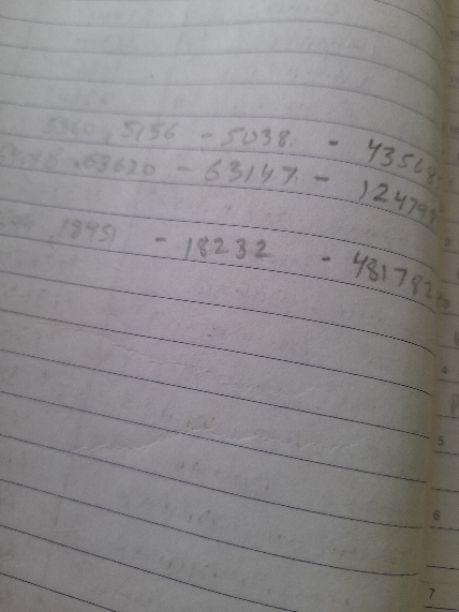 5360, 5156 - 5038. - 43568
63620 - 63147. - 124798
18451 - 18232 - 481782
4
5
6
7